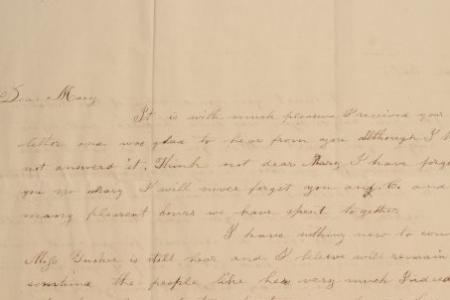 Dear Mary
It is with much pleasure I received your
letter and was glad to hear from you although I
not answered it. Think not dear Mary I have forgo
you no Mary I will never forget you and and
many pleasent hours we have spent together
I have nothing new to
Miss is still hear and I beleive will remain
the people like her very much